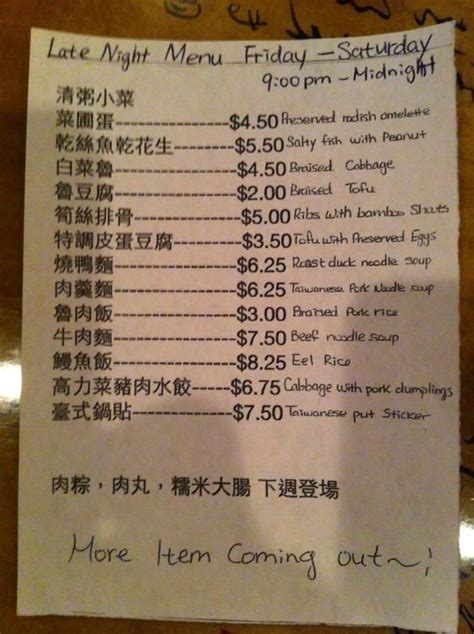 Late Night Menu Friday — Saturday
9:00pm - Midnight
清粥小菜
菜圃蛋----------------$4.50 Preserved radish omelette
乾絲魚乾花生--------$5.50 Salty fish with Peanut
白菜魯----------------$4.50 Braised Cabbage
魯豆腐----------------$2.00 Braised Tofu
筍絲排骨--------------$5.00 Ribs with bamboo Shoots
特調皮蛋豆腐---------$3.50 Tofu with Preserved Eggs
燒鴨麵----------------$6.25 Roast duck noodle soup
肉羹麵----------------$6.25 Taiwanese Pork Noodle soup
魯肉飯----------------$3.00 Braised Pork rice
牛肉麵----------------$7.50 Beef noodle soup
鰻魚飯----------------$8.25 Eel Rice
高力菜豬肉水餃------$6.75 Cabbage with pork dumplings
臺式鍋貼-------------$7.50 Taiwanese put Sticker
肉粽，肉丸，糯米大腸 下週登場
More Item Coming out~!